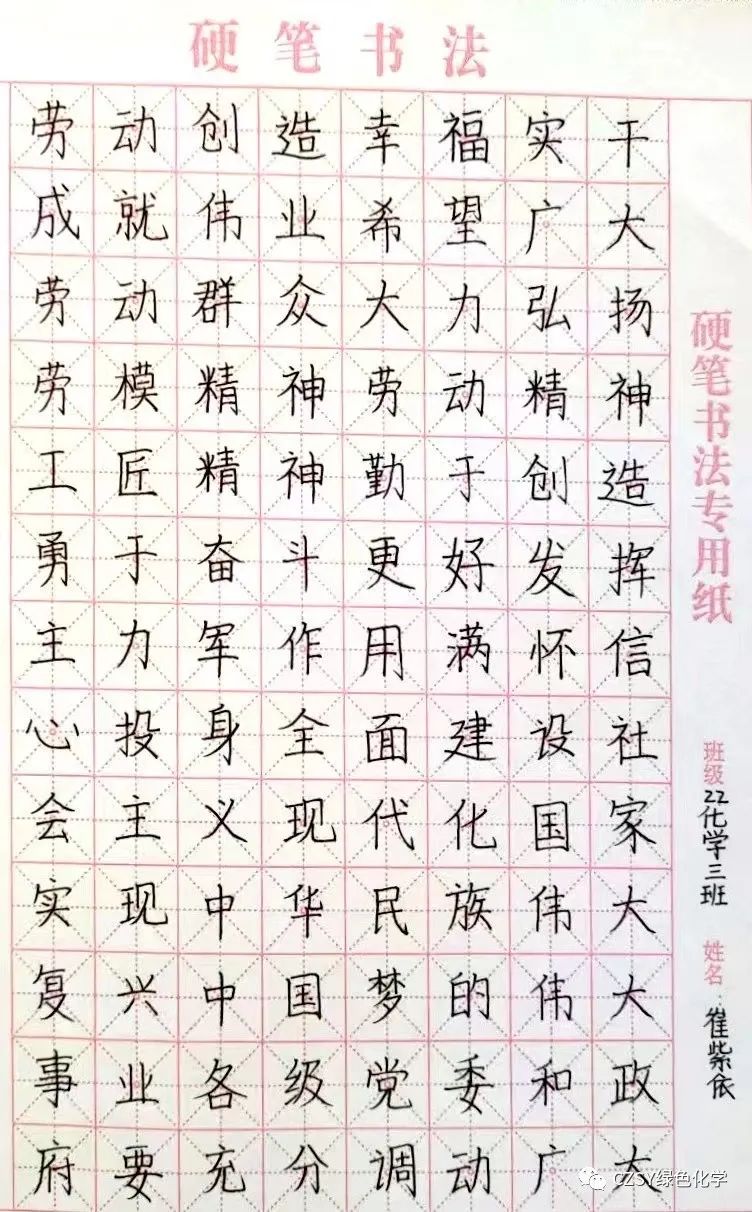 硬笔书法
劳动创造幸福实干
成就伟业希望广大
劳动群众大力弘扬
劳模精神劳动精神
工匠精神勤于创造
勇于奋斗更好发挥
主力军作用满怀信
心投身全面建设社
会主义现代化国家
实现中华民族伟大
复兴中国梦的伟大
事业各级党委和政
府要充分调动广大
硬笔书法专用纸
班级22化学三班
姓名:崔紫依
CZSY绿色化学